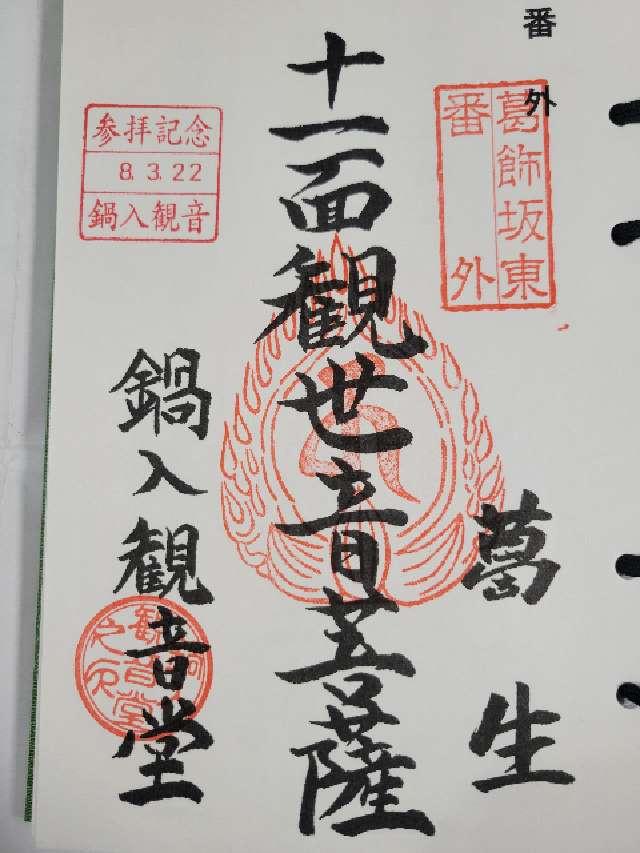 番外
葛飾坂東
番外
葛生
十一面観世音菩薩
参拝記念
8.3.22
鍋入観音
鍋入観音堂